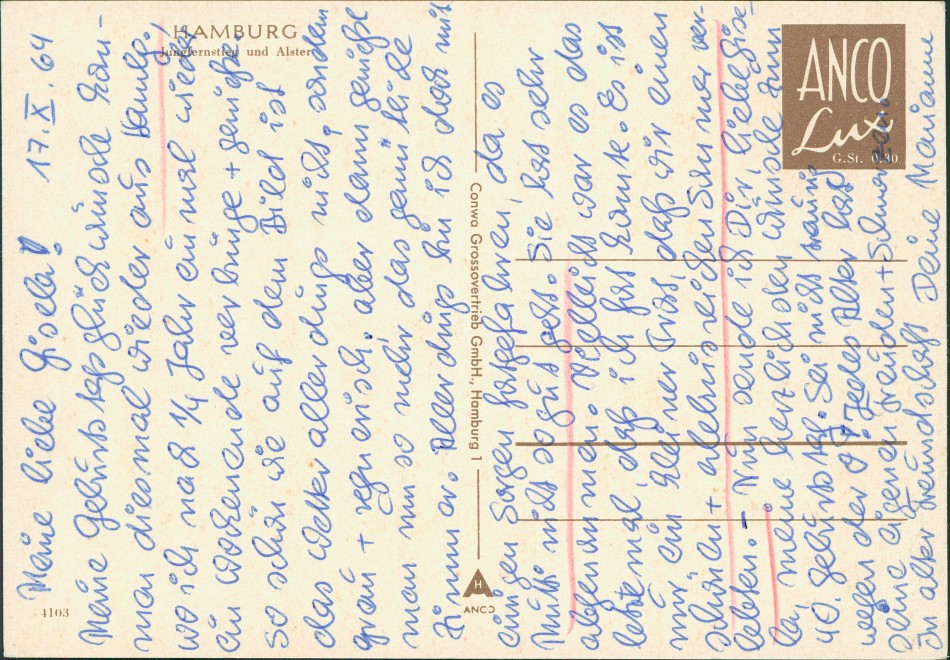 HAMBURG
Jungfernstieg und Alster
17. X. 64
Meine liebe Gisela!
Meine Geburtstagsglückwünsche kom-
men diesmal wieder aus Hamburg.
wo ich nach 1/4 Jahr einmal wieder
ein Wochenende verbringe + genieße
so schön wie auf dem Bild ist
das Wetter allerdings nicht, sondern
grau + regnerisch, aber dann genießt
man um so mehr das gemütliche
Zimmer. Allerdings bin ich doch mit
einigen Sorgen fortgefahren, da es
Mutti nicht so gut geht. Sie hat sehr
abgenommen. Vielleicht war es das
letztemal, daß ich fort konnte. Es ist
mir ein kleiner Trost, daß wir einen
schönen + erlebnisreichen Sommer ver-
lebten. - Nun sende ich Dir, liebe Gise-
la, meine herzlichsten Wünsche zum
40. Geburtstag. Sei nicht traurig
wegen der 0! Jedes Alter hat
seine eigenen Freuden + Schmerzen.
In alter Freundschaft Deine Mariann
ANCO
Lux
G.St. 0.30
Conwa Grossovertrieb GmbH., Hamburg 1
H
ANCO
4103